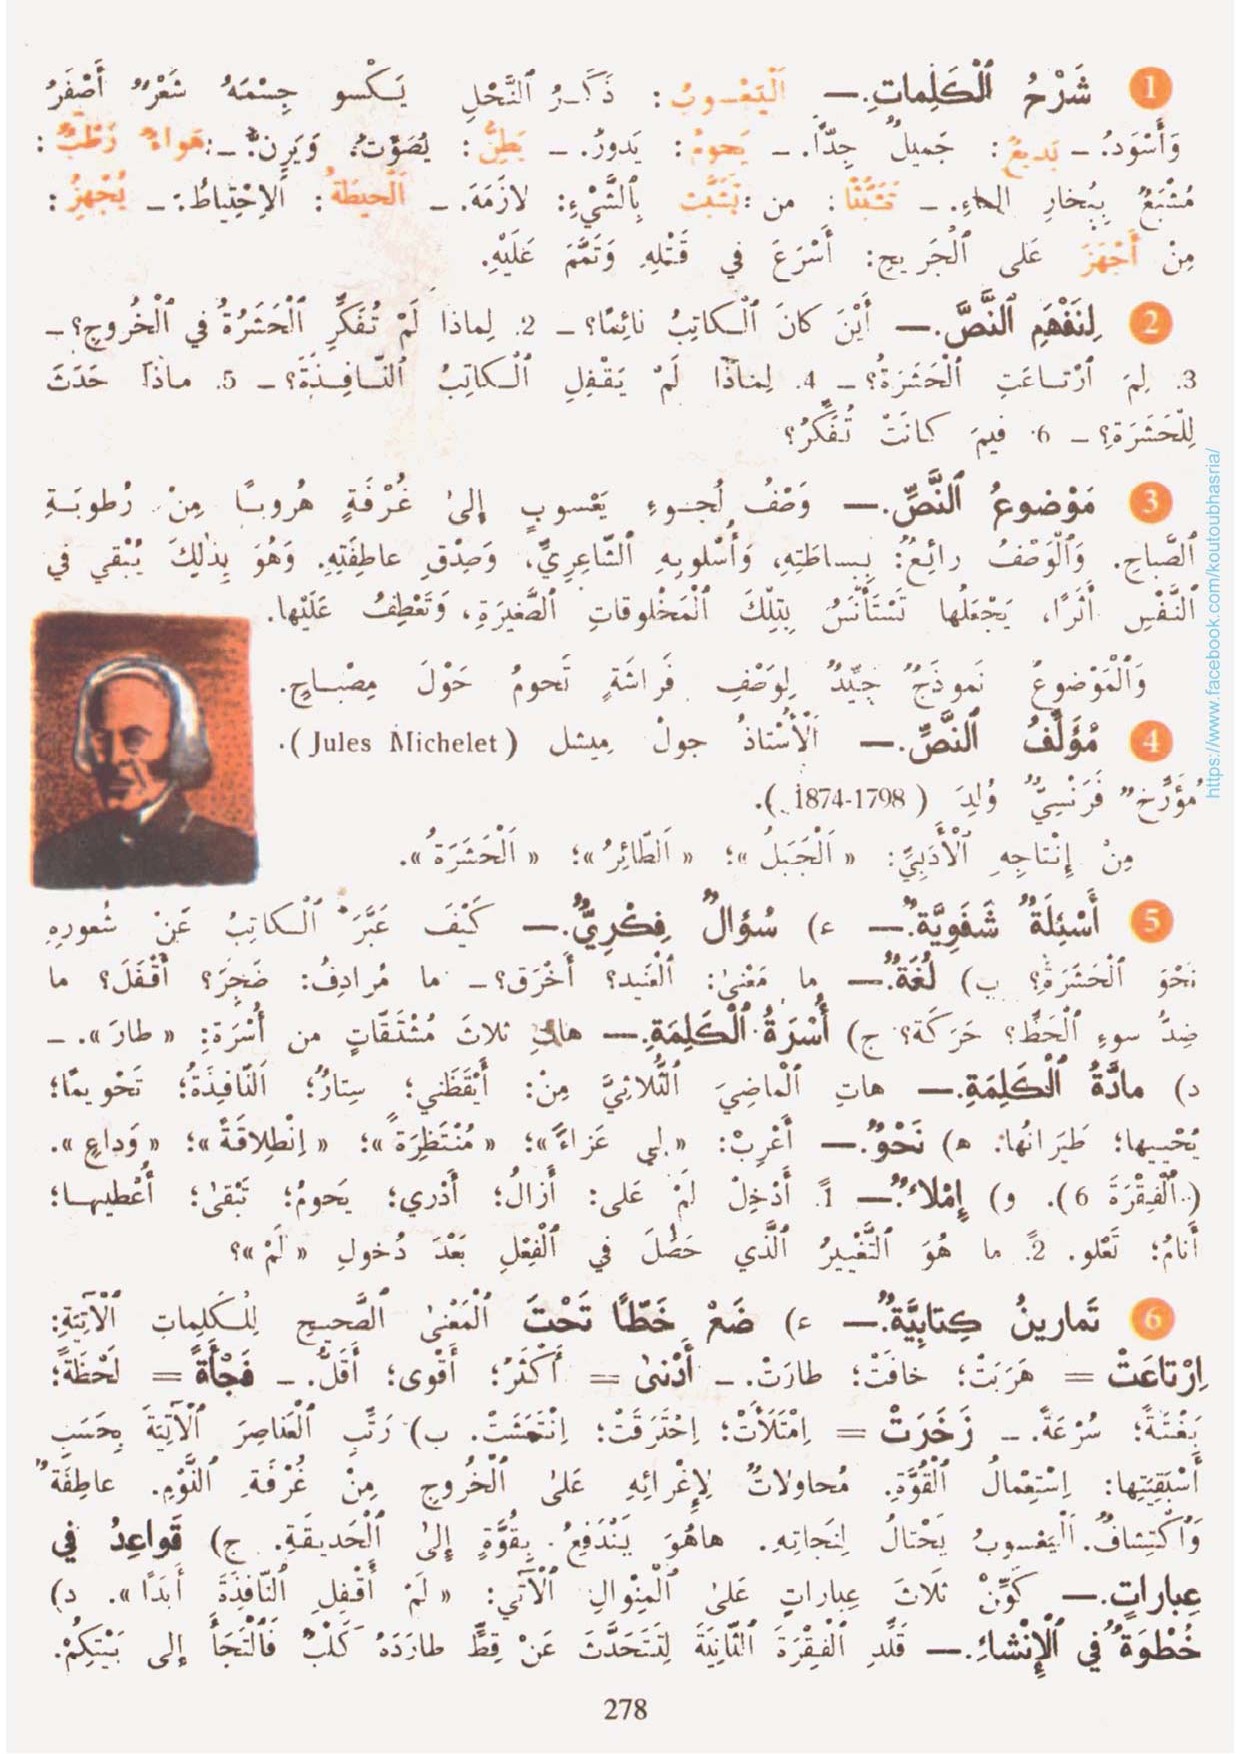 1 شَرْحُ ٱلْكَلِماتِ.— اَلْيَعْـسوبُ: ذَكَـرُ ٱلنَّحْلِ يَـكْسو جِسْمَهُ شَعْرٌ أَصْفَرُ
وَأَسْوَدُ. – بَديعٌ: جَميلٌ جِدّاً. – يَحومُ: يَدورُ. – يَطِنُّ: يُصَوِّتُ وَيَرِنُّ. – هَواءٌ رَطْبٌ:
مُشْبَعٌ بِبُخارِ الماءِ. – تَشَبُّثًا: من: تَشَبَّثَ بِالشَّيْءِ: لازَمَهُ. – اَلْحيطَةُ: اَلاِحْتِياطُ. – يُجْهِزُ:
مِنْ أَجْهَزَ عَلى ٱلْجَريحِ: أَسْرَعَ في قَتْلِهِ وَتَمَّمَ عَلَيْهِ.
2 لِنَفْهَمِ ٱلنَّصَّ.— أَيْنَ كانَ ٱلْـكاتِبُ نائِمًا؟ – 2. لِماذا لَمْ تُفَكِّرِ ٱلْحَشَرَةُ في ٱلْخُروجِ؟ –
3. لِمَ ٱرْتـاعَتِ ٱلْحَشَرَةُ؟ – 4. لِماذا لَمْ يَقْفِلِ ٱلْـكاتِبُ ٱلنّـافِـذَةَ؟ – 5. ماذا حَدَثَ
لِلْحَشَرَةِ؟ – 6. فيمَ كـانَتْ تُفَكِّرُ؟
3 مَوْضوعُ ٱلنَّصِّ.— وَصْفُ لُجـوءِ يَعْسوبٍ إِلىٰ غُرْفَةٍ هُروبـًا مِنْ رُطوبَـةِ
ٱلصَّباحِ. وَٱلْوَصْفُ رائِعٌ: بِبساطَتِهِ، وَأُسْلوبِـهِ ٱلشّاعِرِيِّ، وَصِدْقِ عاطِفَتِهِ. وَهُوَ بِذٰلِكَ يُبْقي في
ٱلنَّفْسِ أَثَرًا، يَجْعَلُها تَسْتَأْنِسُ بِتِلْكَ ٱلْمَخْلوقاتِ ٱلصَّغيرَةِ، وَتَعْطِفُ عَلَيْها.
وَٱلْمَوْضوعُ نَموذَجٌ جَيِّدٌ لِوَصْفِ فَراشَةٍ تَحومُ حَوْلَ مِصْبـاحٍ.
4 مُؤَلِّفُ ٱلنَّصِّ.— اَلْأُسْتاذُ جولْ ميشل (Jules Michelet).
مُؤَرِّخٌ فَرَنْسِيٌّ وُلِدَ (1798-1874).
مِنْ إِنْتاجِهِ ٱلْأَدَبِيِّ: «اَلْجَبَلُ»؛ «اَلطّائِرُ»؛ «اَلْحَشَرَةُ».
5 أَسْئِلَةٌ شَفَوِيَّةٌ.— ء) سُؤالٌ فِكْرِيٌّ.— كَيْفَ عَبَّرَ ٱلْـكاتِبُ عَنْ شُعورِهِ
نَحْوَ ٱلْحَشَرَةِ؟ ب) لُغَةٌ.— ما مَعْنىٰ: ٱلْعَنيد؟ أَخْرَق؟ – ما مُرادِفُ: ضَجِرَ؟ أَقْفَلَ؟ ما
ضِدُّ سوءِ ٱلْحَظِّ؟ حَرَكَة؟ ج) أُسْرَةُ ٱلْكَلِمَةِ.— هاتِ ثَلاثَ مُشْتَقّاتٍ من أُسْرَةِ: «طارَ». –
د) مادَّةُ ٱلْكَلِمَةِ.— هاتِ ٱلْماضِيَ ٱلثُّلاثِيَّ مِنْ: أَيْقَظَني؛ سِتارٌ؛ اَلنّافِذَةُ؛ تَحْويمًا؛
يُحْييها؛ طَيَرانُها: ه) نَحْوٌ.— أَعْرِبْ: «لي عَزاءً»؛ «مُنْتَظِرَةً»؛ «اِنْطِلاقَةً»؛ «وَداعٍ».
(ٱلْفِقْرَةَ 6). و) إِمْلاءٌ.— 1ً. أَدْخِلْ لَمْ عَلى: أَزالُ؛ أَدْري؛ يَحومُ؛ تَبْقىٰ؛ أُعْطيهـا؛
أَنامُ؛ تَعْلو. 2ً. ما هُوَ ٱلتَّغْييرُ ٱلَّذي حَصَلَ في ٱلْفِعْلِ بَعْدَ دُخولِ «لَمْ»؟
6 تَمارينُ كِتابِيَّةٌ.— ء) ضَعْ خَطًّا تَحْتَ ٱلْمَعْنىٰ ٱلصَّحيحِ لِلْـكَلِماتِ ٱلْآتِيَةِ:
اِرْتاعَتْ = هَرَبَتْ؛ خافَتْ؛ طارَتْ. – أَدْنىٰ = أَكْثَرُ؛ أَقْوى؛ أَقَلُّ. – فَجْأَةً = لَحْظَةً؛
بَغْتَةً؛ سُرْعَةً. – زَخَرَتْ = اِمْتَلَأَتْ؛ اِحْتَرَقَتْ؛ اِنْتَعَشَتْ. ب) رَتِّبِ ٱلْعَناصِرَ ٱلْآتِيَةَ بِحَسَبِ
أَسْبَقِيَتِها: اِسْتِعْمالُ ٱلْقُوَّةِ. مُحاولاتٌ لِإِغْرائِهِ عَلىٰ ٱلْخُروجِ مِنْ غُرْفَةِ ٱلنَّوْمِ. عاطِفَةٌ
وَٱكْتِشافٌ. اَلْيَعْسوبُ يَحْتالُ لِنَجاتِهِ. هاهُوَ يَنْدَفِعُ بِقُوَّةٍ إِلىٰ ٱلْحَديقَةِ. ج) قَواعِدُ في
عِباراتٍ.— كَوِّنْ ثَلاثَ عِباراتٍ عَلىٰ ٱلْمِنْوالِ ٱلْآتي: «لَمْ أَقْفِلِ ٱلنّافِذَةَ أَبَدًا». د)
خُطْوَةٌ في ٱلْإِنْشاءِ.— قَلِّدِ ٱلْفِقْرَةَ ٱلثّانِيَةَ لِتَتَحَدَّثَ عَنْ قِطٍّ طارَدَهُ كَلْبٌ فَٱلْتَجَأَ إلى بَيْتِكُمْ.
278
https://www.facebook.com/koutoubhasria/